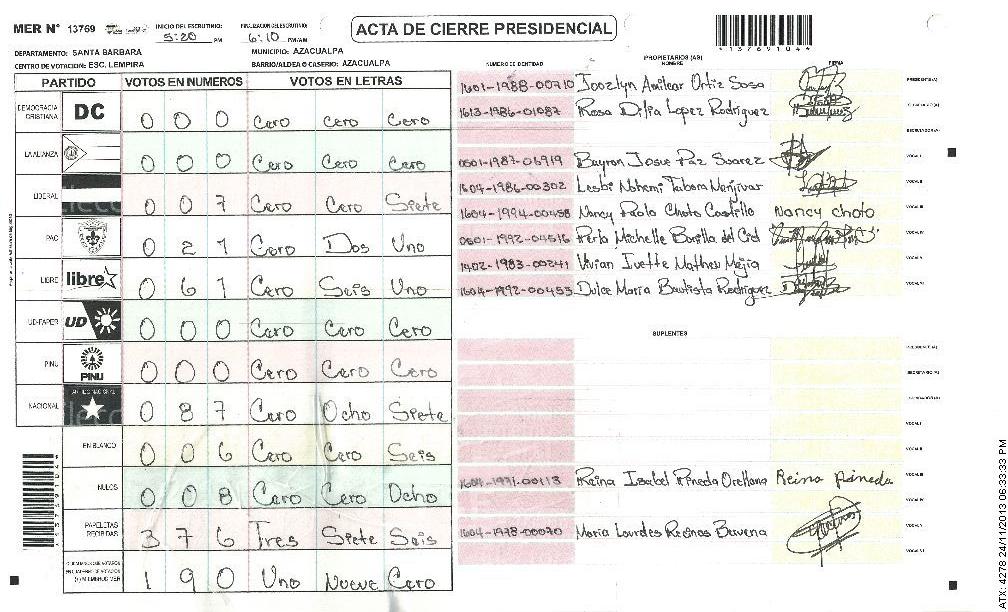 MER N° 13769
INICIO DEL ESCRUTINIO:
5:20 PM
FINALIZACION DEL ESCRUTINIO:
6:10 PM/AM
ACTA DE CIERRE PRESIDENCIAL
4137691044
DEPARTAMENTO: SANTA BARBARA
MUNICIPIO: AZACUALPA
CENTRO DE VOTACION: ESC. LEMPIRA
BARRIO/ALDEA O CASERIO: AZACUALPA
PARTIDO VOTOS EN NUMEROS VOTOS EN LETRAS
DEMOCRACIA CRISTIANA DC 0 0 0 Cero Cero Cero
LA ALIANZA 0 0 0 Cero Cero Cero
LIBERAL 0 0 7 Cero Cero Siete
PAC 0 2 1 Cero Dos Uno
LIBRE libre 0 6 1 Cero Seis Uno
UD-FAPER UD 0 0 0 Cero Cero Cero
PINU PINU 0 0 0 Cero Cero Cero
NACIONAL 0 8 7 Cero Ocho Siete
EN BLANCO 0 0 6 Cero Cero Seis
NULOS 0 0 8 Cero Cero Ocho
PAPELETAS RECIBIDAS 3 7 6 Tres Siete Seis
1 9 0 Uno Nueve Cero
PROPIETARIOS (AS)
NUMERO DE IDENTIDAD NOMBRE FIRMA
1601-1988-00710 Joozlyn Amilcar Ortiz Sosa PRESIDENTE(A)
1613-1986-01087 Rosa Dilia Lopez Rodriguez
SECRETARIO(A)
0501-1987-06919 Bayron Josue Paz Suarez VOCAL I
1604-1986-00302 Lesbi Nohemi Tabora Menjivar VOCAL II
1604-1994-00458 Nancy Paola Choto Castillo Nancy choto VOCAL III
0501-1992-04516 Perla Michelle
1402-1983-00241 Vivian Ivette Matheu Mejia VOCAL V
1604-1992-00453 Dulce Maria Bautista Rodriguez VOCAL VI
SUPLENTES
PRESIDENTE(A)
SECRETARIO(A)
VOCAL I
VOCAL II
1604-1971-00113 Reina Isabel Pineda Orellana Reina pineda VOCAL III
VOCAL IV
1604-1978-00070 Maria Lourdes Recinos VOCAL V
VOCAL VI
ATX: 4278 24/11/2013 06:33:33 PM